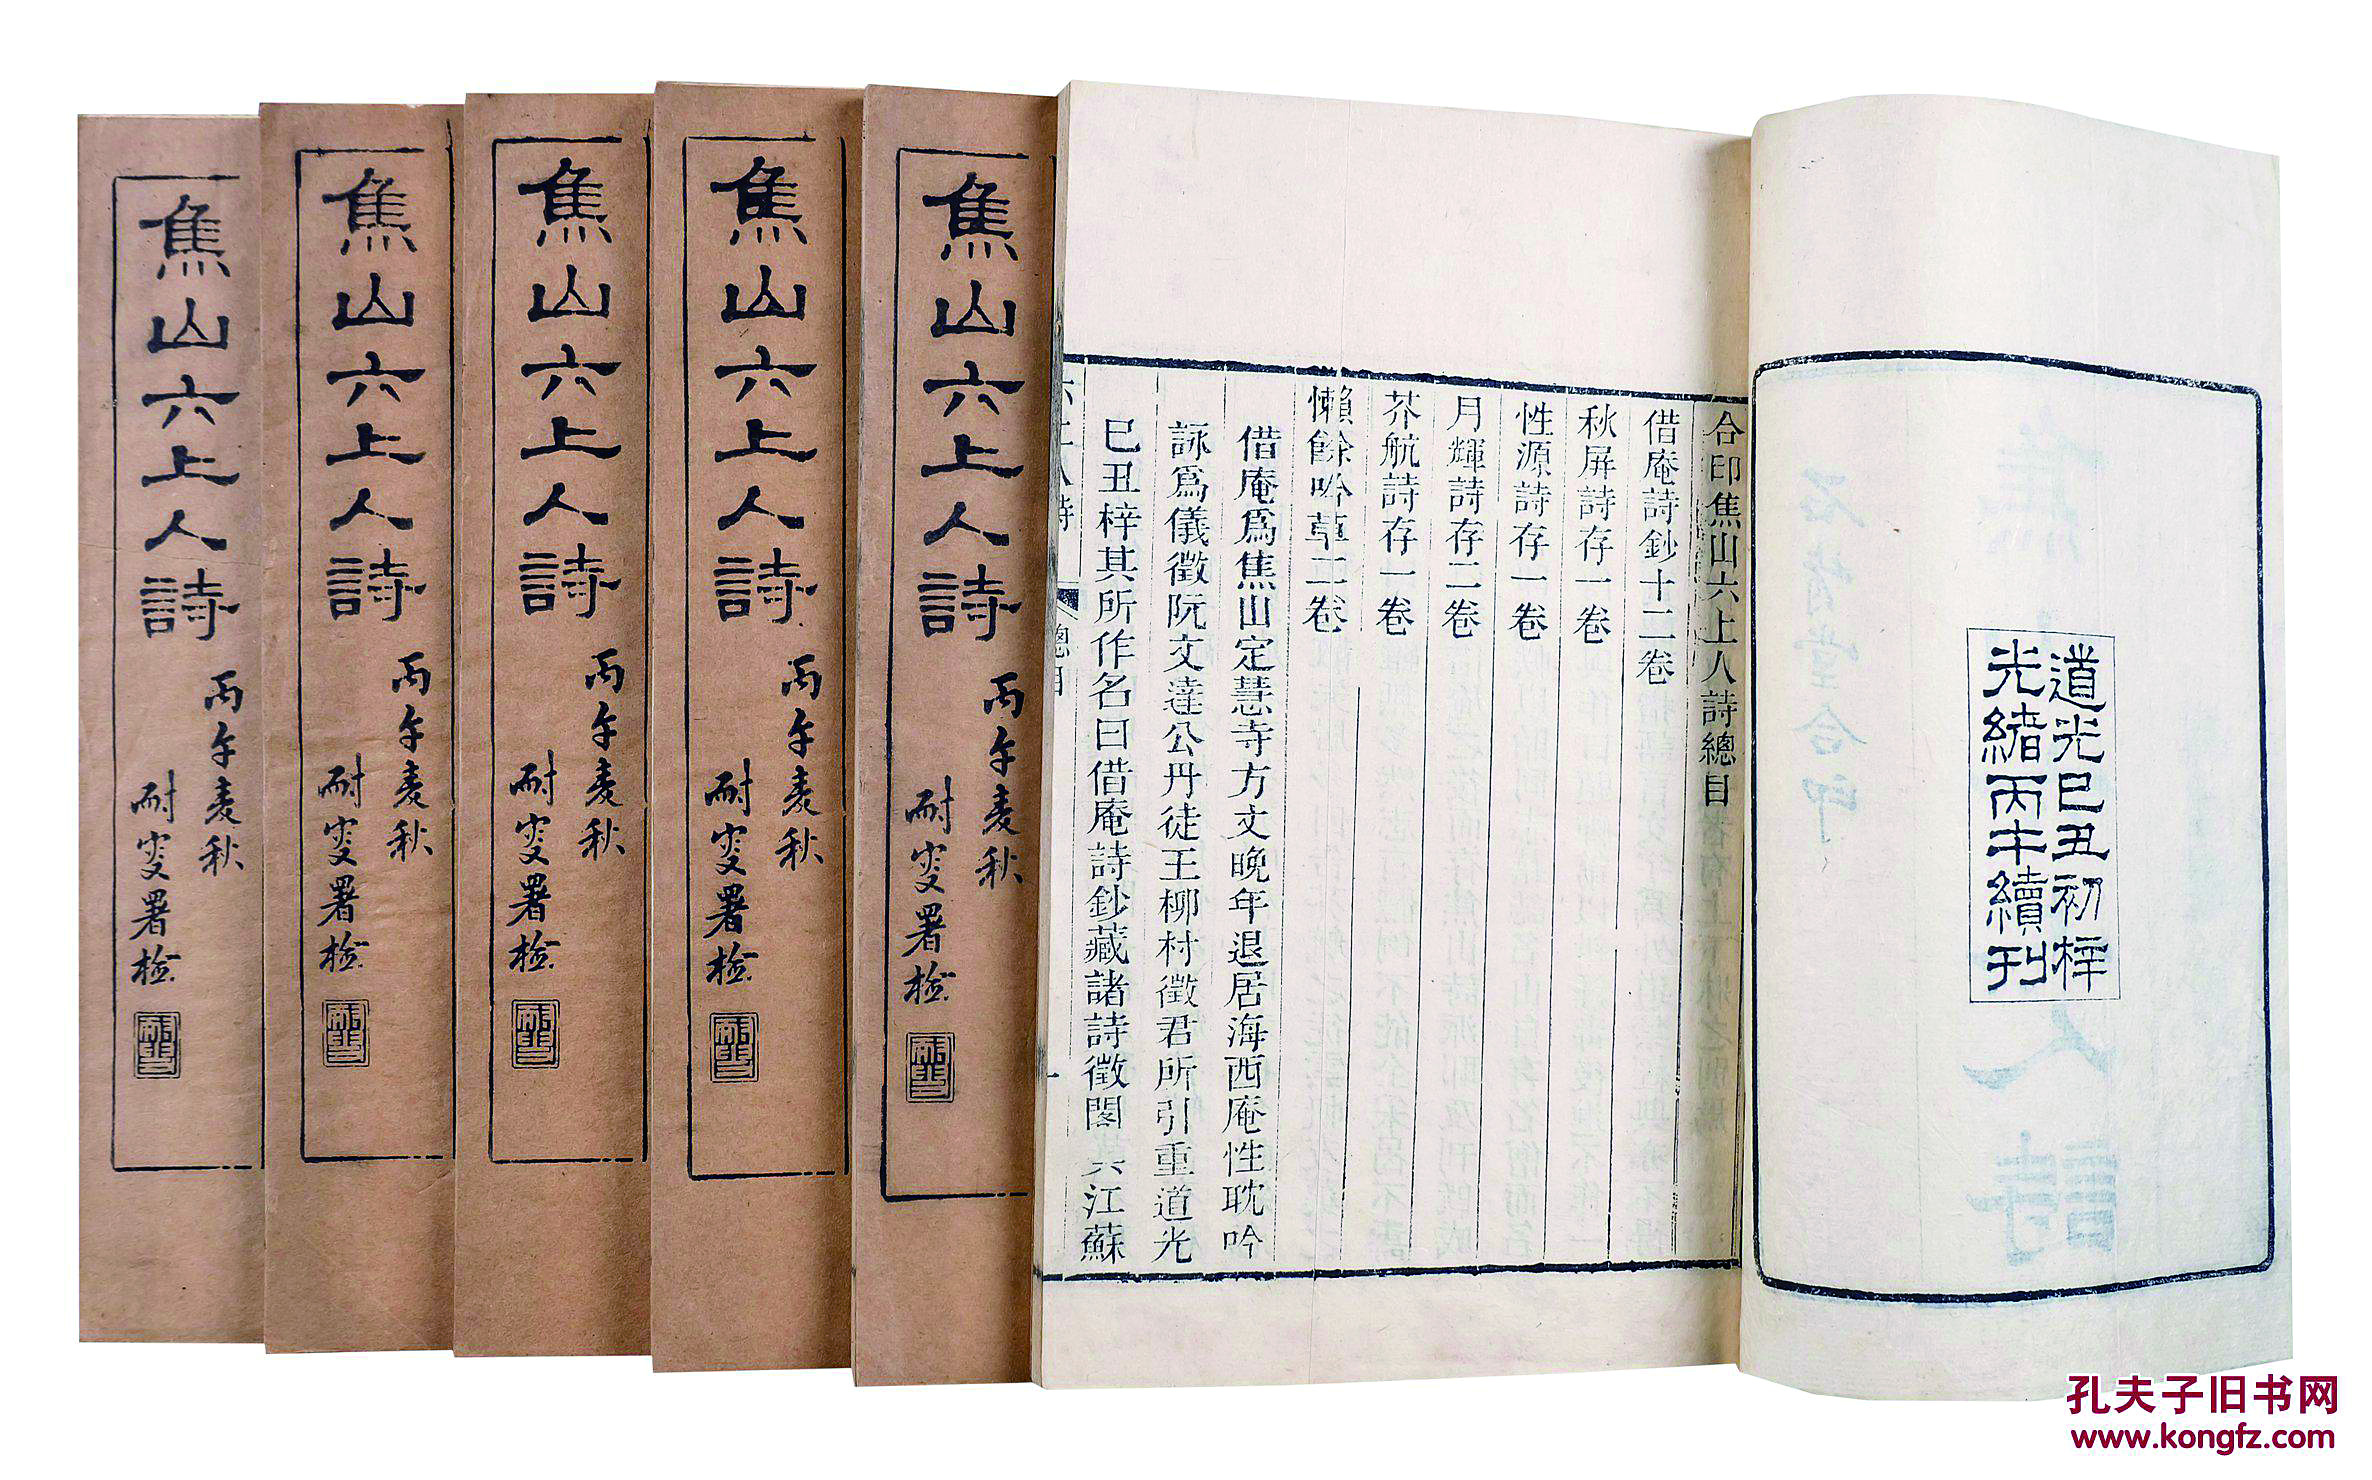 道光己丑初梓
光緒丙午續刊
合印焦山六上人詩總目
借庵詩鈔十二卷
秋屏詩存一卷
性源詩存一卷
月輝詩存二卷
芥航詩存一卷
懶餘吟草二卷
借庵爲焦山定慧寺方丈晚年退居海西庵性耽吟
詠爲儀徵阮文達公丹徒王柳村徵君所引重道光
己丑梓其所作名曰借庵詩鈔藏諸詩徵閣其江蘇
六上人詩
總目
一
焦山六上人詩
丙午麦秋
耐叟署检
焦山六上人詩
丙午麦秋
耐叟署检
焦山六上人詩
丙午麦秋
耐叟署检
焦山六上人詩
丙午麦秋
耐叟署检
焦山六上人詩
丙午麦秋
耐叟署检
孔夫子旧书网
www.kongfz.com